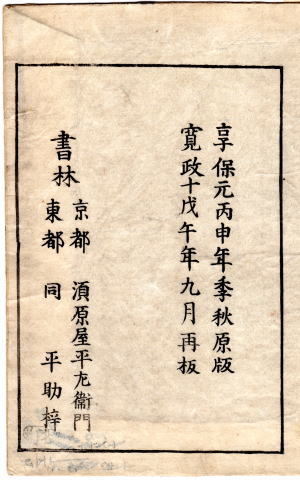 享保元丙申年季秋原版
寛政十戊午年九月再板
書林
京都　須原屋平左衞門
東都　同　平助梓